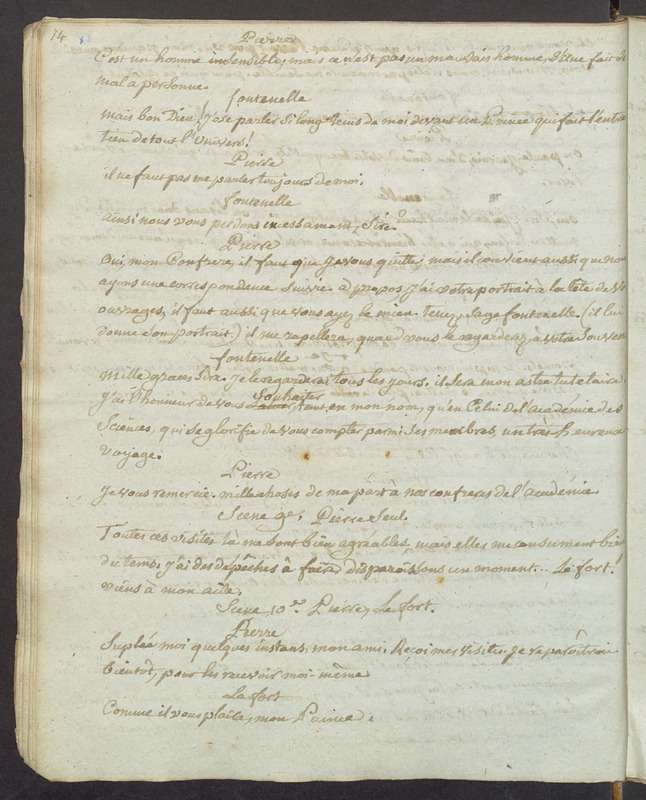 14
Pierre
C'est un homme insensible, mais ce n'est pas un mauvais homme. Il ne fait de
mal à personne.
fontenelle
mais bon Dieu! j'ose parler si long-tems de moi devant un Prince qui fait l'entre
tien de tout l'Univers!
Pierre
il ne faut pas me parler toujours de moi.
fontenelle
ainsi nous vous perdons incessament, Sire?
Pierre
Oui, mon Confrere, il faut que je vous quitte; mais il convient aussi que nous
ayons une correspondence suivie. à propos j'ai votre portrait à la tête de vos
ouvrages, il faut aussi que vous ayez le mien. tenez, Sage fontenelle (il lui
donne son portrait) il me rapellera, quand vous le regarderez, à votre souvenir
fontenelle
Mille graces Sire. je le regarderai tous les jours. il sera mon astre tutelaire.
j'ai l'honneur de vous souhaiter, tant en mon nom, qu'en Celui de l'académie des
Sciences, qui se glorifie de vous compter parmi ses membres, un très heureux
voyage.
Pierre
Je vous remercie. mille choses de ma part à nos confreres de l'académie
Scene 9e. Pierre Seul.
Toutes ces visites là me sont bien agréables, mais elles me consument bien
du tems. j'ai des dépêches à faire disparoissons un moment... Le fort!
viens à mon aide.
Scene 10e. Pierre, Le fort.
Pierre
Suplée moi quelques instans, mon ami. Reçoi mes visites. je reparoîtrai
bientôt, pour les recevoir moi-même
Le fort
Comme il vous plaira, mon Prince.